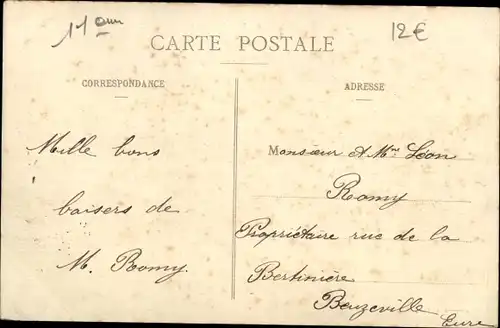 12€
CARTE POSTALE
CORRESPONDANCE
ADRESSE
Mille bons
baisers de
M. Romy.
Monsieur et Mme Léon
Romy
Propriétaire rue de la
Bertinière
Beuzeville
Eure